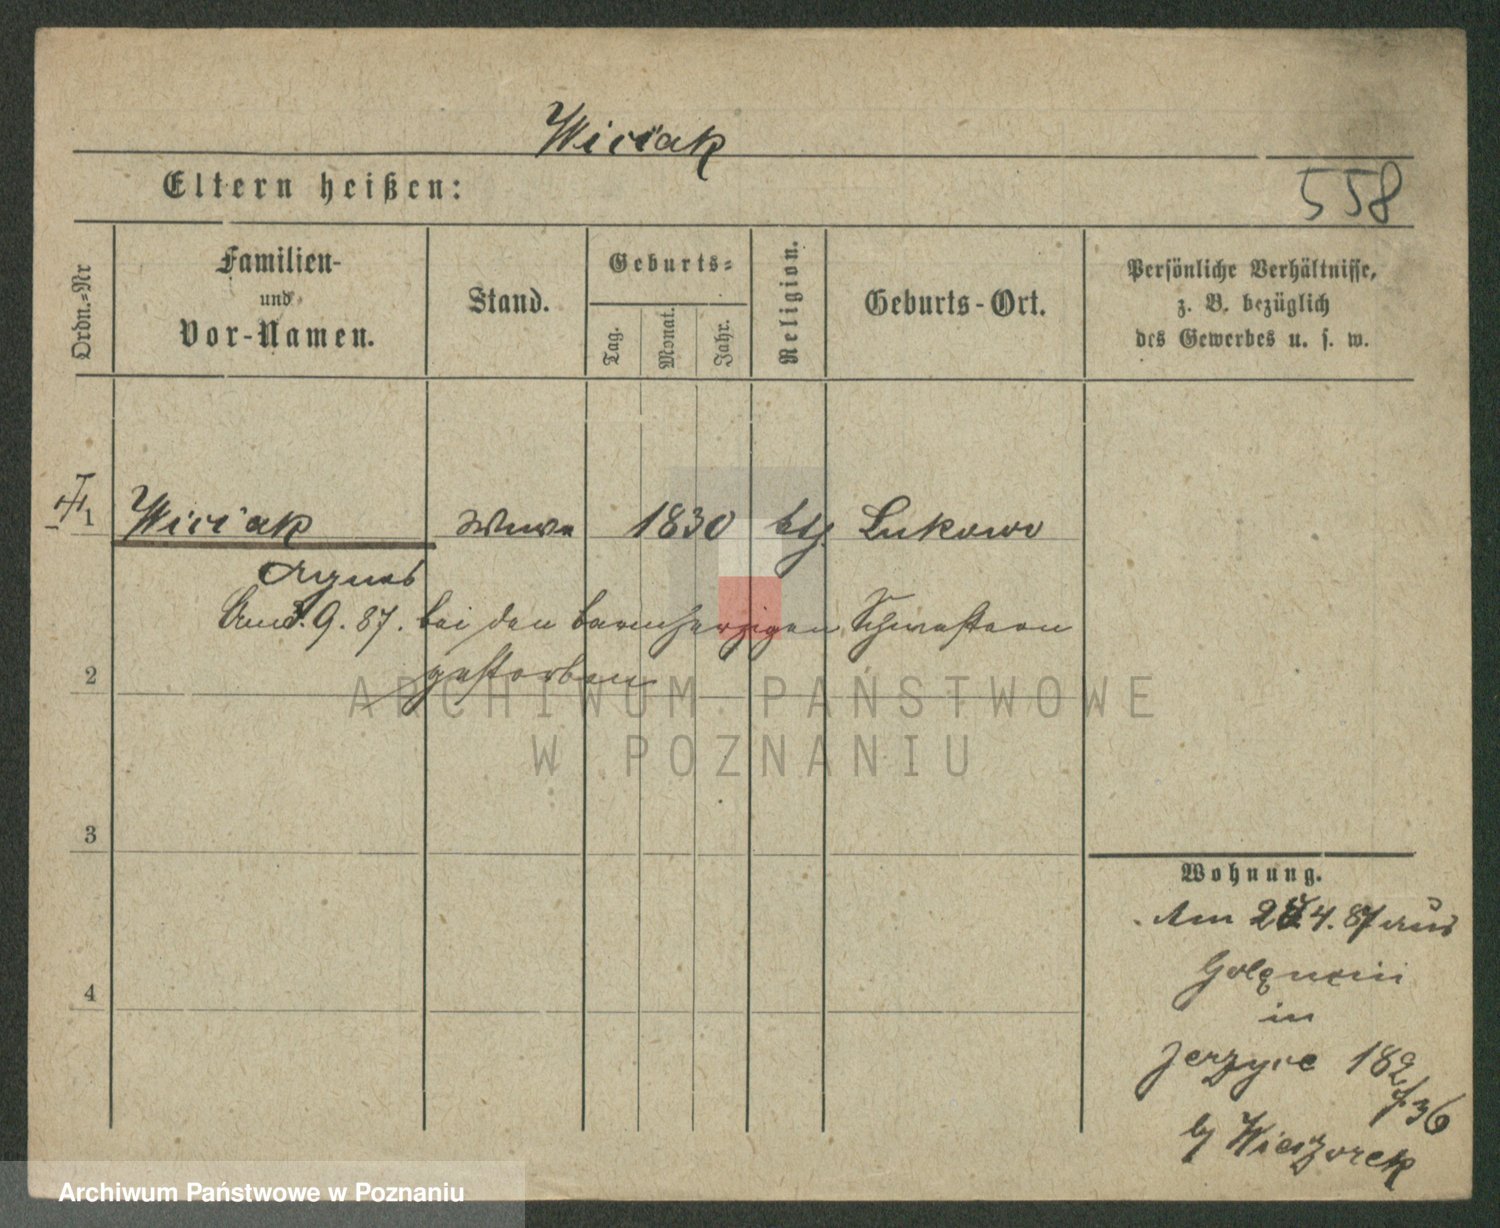 Wiciak
Eltern heißen:
558
Ordn.=Nr
Familien-
und
Vor-Namen.
Stand.
Geburts=
Tag.
Monat.
Jahr.
Religion.
Geburts-Ort.
Persönliche Verhältnisse,
z. B. bezüglich
des Gewerbes u. s. w.
1 Wiciak Wwe 1830 kth. Lukowo
Agnes
9. 87. bei den barmherzigen Schwestern
gestorben
2
ARCHIWUM PAŃSTWOWE
W POZNANIU
3
4
Wohnung.
Am 4. 87 aus
in
Jerzyce 182
/36
by Wieczorek
Archiwum Państwowe w Poznaniu